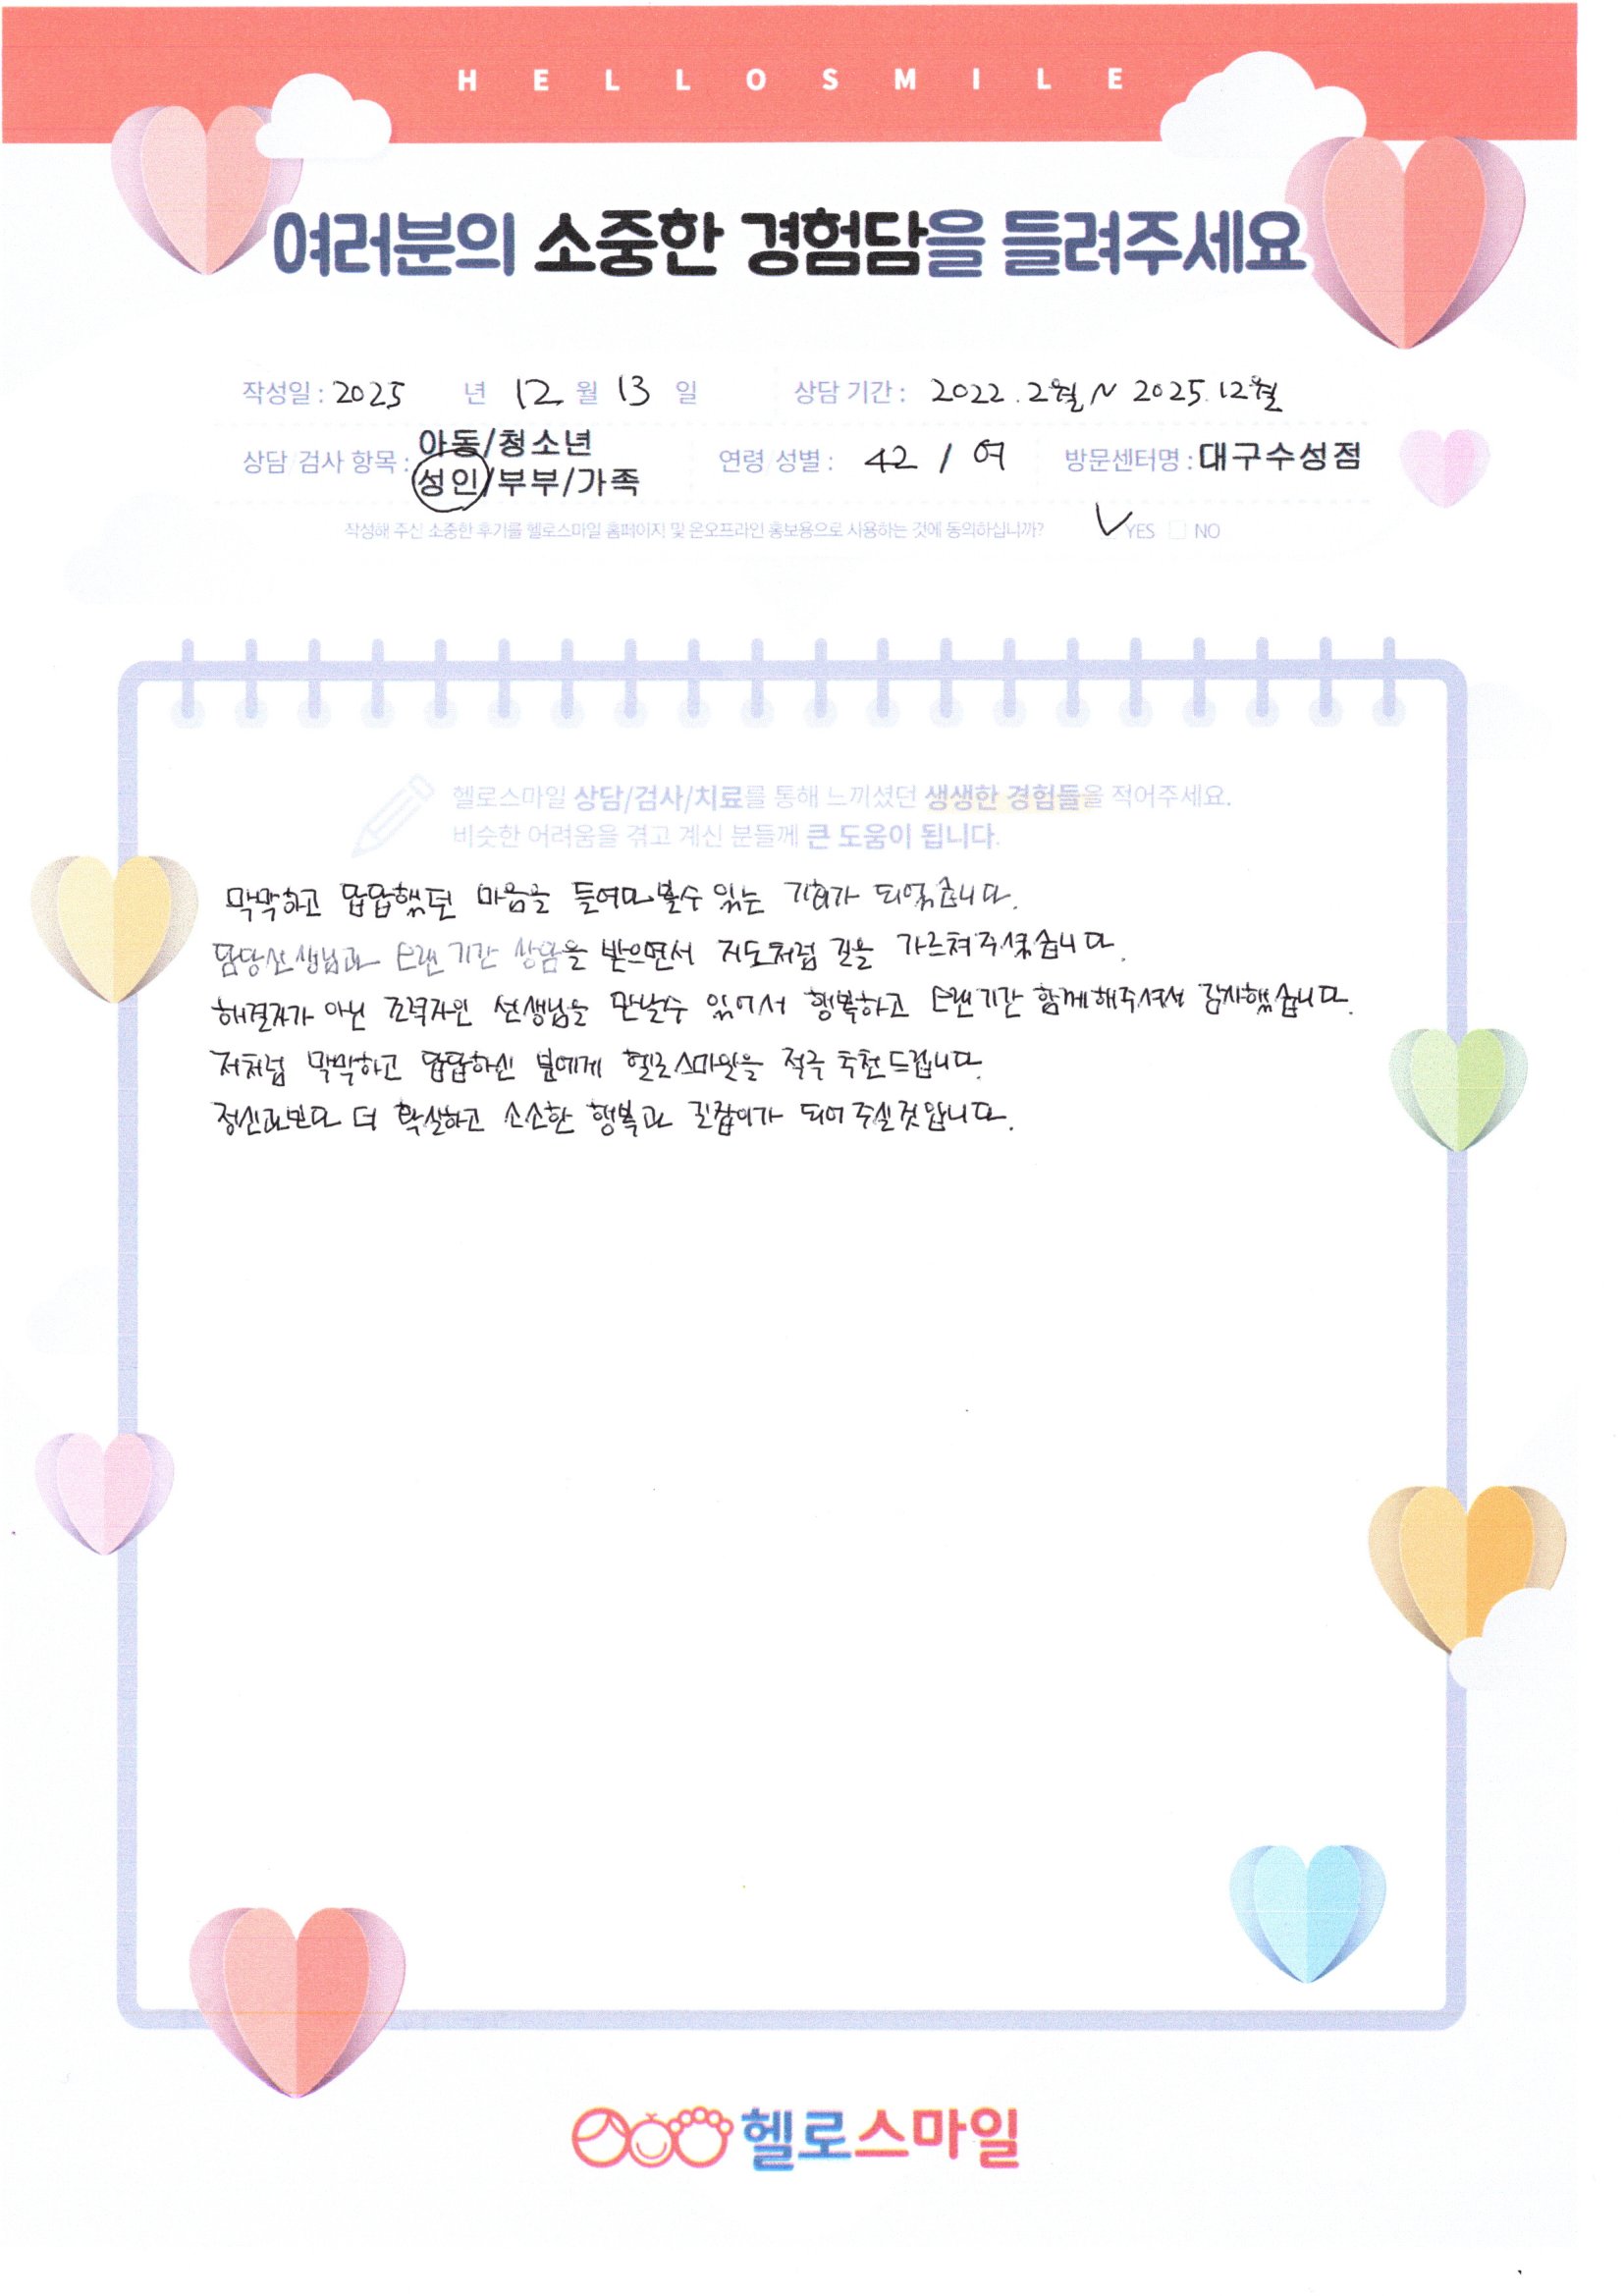 HELLOSMILE
여러분의 소중한 경험담을 들려주세요
작성일 : 2025 년 12 월 13 일 상담 기간 : 2022. 2월 ~ 2025. 12월
상담 검사 항목 : 아동/청소년
성인/부부/가족
연령 성별 : 42 / 여 방문센터명 : 대구수성점
작성해 주신 소중한 후기를 헬로스마일 홈페이지 및 온오프라인 홍보용으로 사용하는 것에 동의하십니까? YES NO
헬로스마일 상담/검사/치료를 통해 느끼셨던 생생한 경험들을 적어주세요.
비슷한 어려움을 겪고 계신 분들께 큰 도움이 됩니다.
막막하고 답답했던 마음을 들여다 볼수 있는 기회가 되었습니다.
담당선생님과 오랜 기간 상담을 받으면서 지도처럼 길을 가르쳐주셨습니다.
해결자가 아닌 조력자인 선생님을 만날수 있어서 행복하고 오랜기간 함께해주셔서 감사했습니다.
저처럼 막막하고 답답하신 분에게 헬로스마일을 적극 추천드립니다.
정신과보다 더 확실하고 소소한 행복과 길잡이가 되어 주실것입니다.
헬로스마일